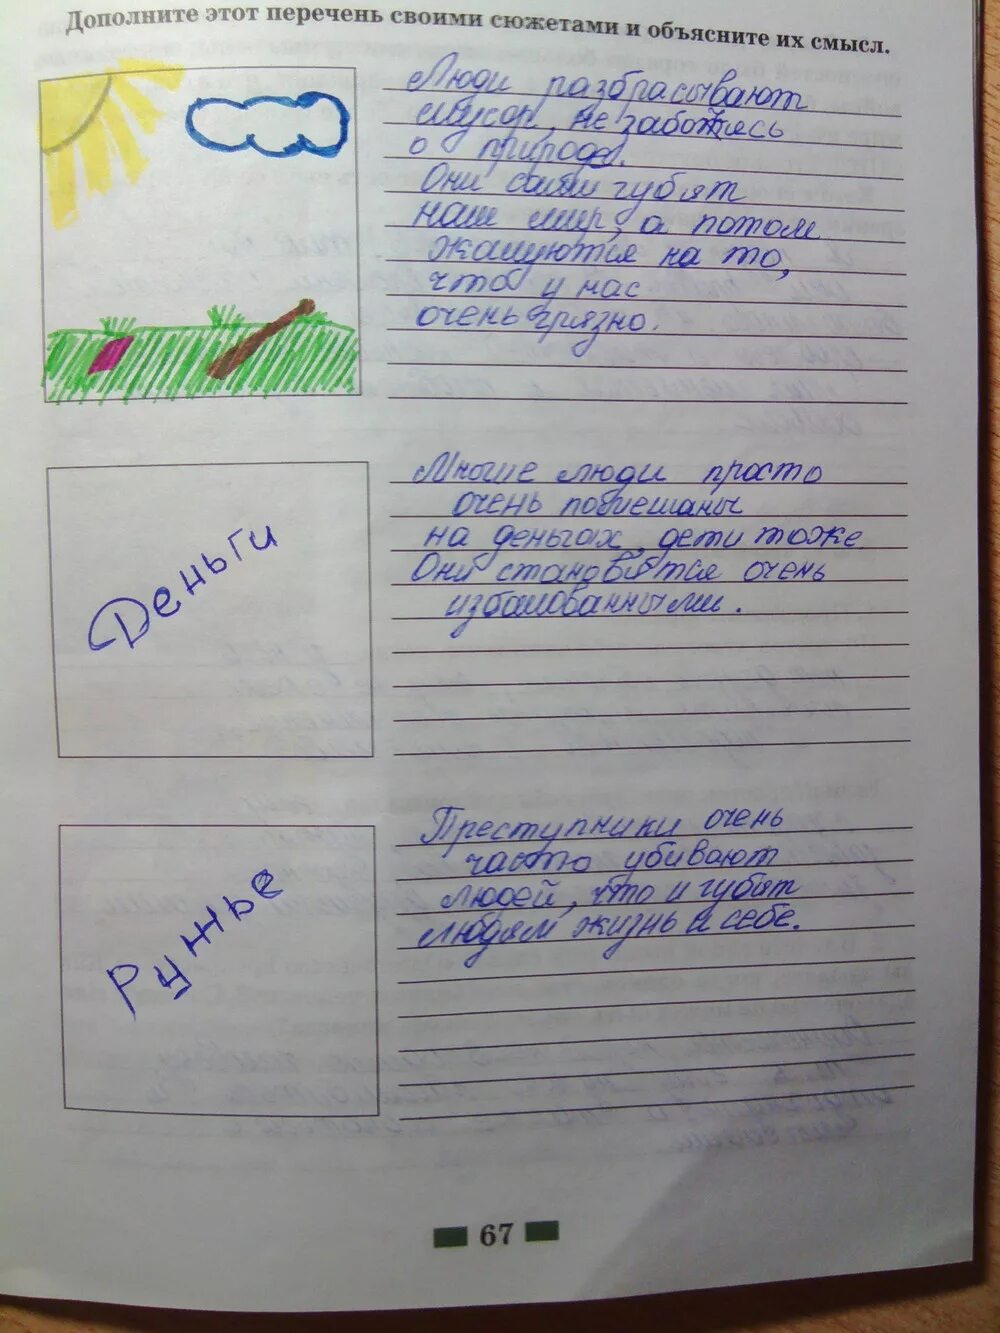 Дополните этот перечень своими сюжетами и объясните их смысл.
Люди разбрасывают
мусор, не заботясь
о природе.
Они сами губят
наш мир, а потом
жалуются на то,
что у нас
очень грязно.
Деньги
Многие люди просто
очень помешаны
на деньгах, дети тоже
Они становятся очень
избалованными.
Ружье
Преступники очень
часто убивают
людей, что и губят
людям жизнь и себе.
67